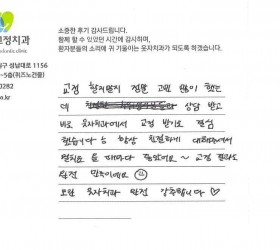 소중한 후기 감사드립니다.
함께 할 수 있었던 시간에 감사하며,
환자분들의 소리에 귀 기울이는 웃자치과가 되도록 하겠습니다.
교정치과
구 성남대로 1156
-5층(위즈노건물)
0282
o.kr
교정 할지말지 정말 고민 많이 했는
데 상담 받고
바로 웃자치과에서 교정 받기로 결심
했습니다 늘 항상 친절하게 대해주셔서
때마다 좋았어요~ 교정 결과도
완전 만족이에요
모두 웃자치과 완전 강추합니다